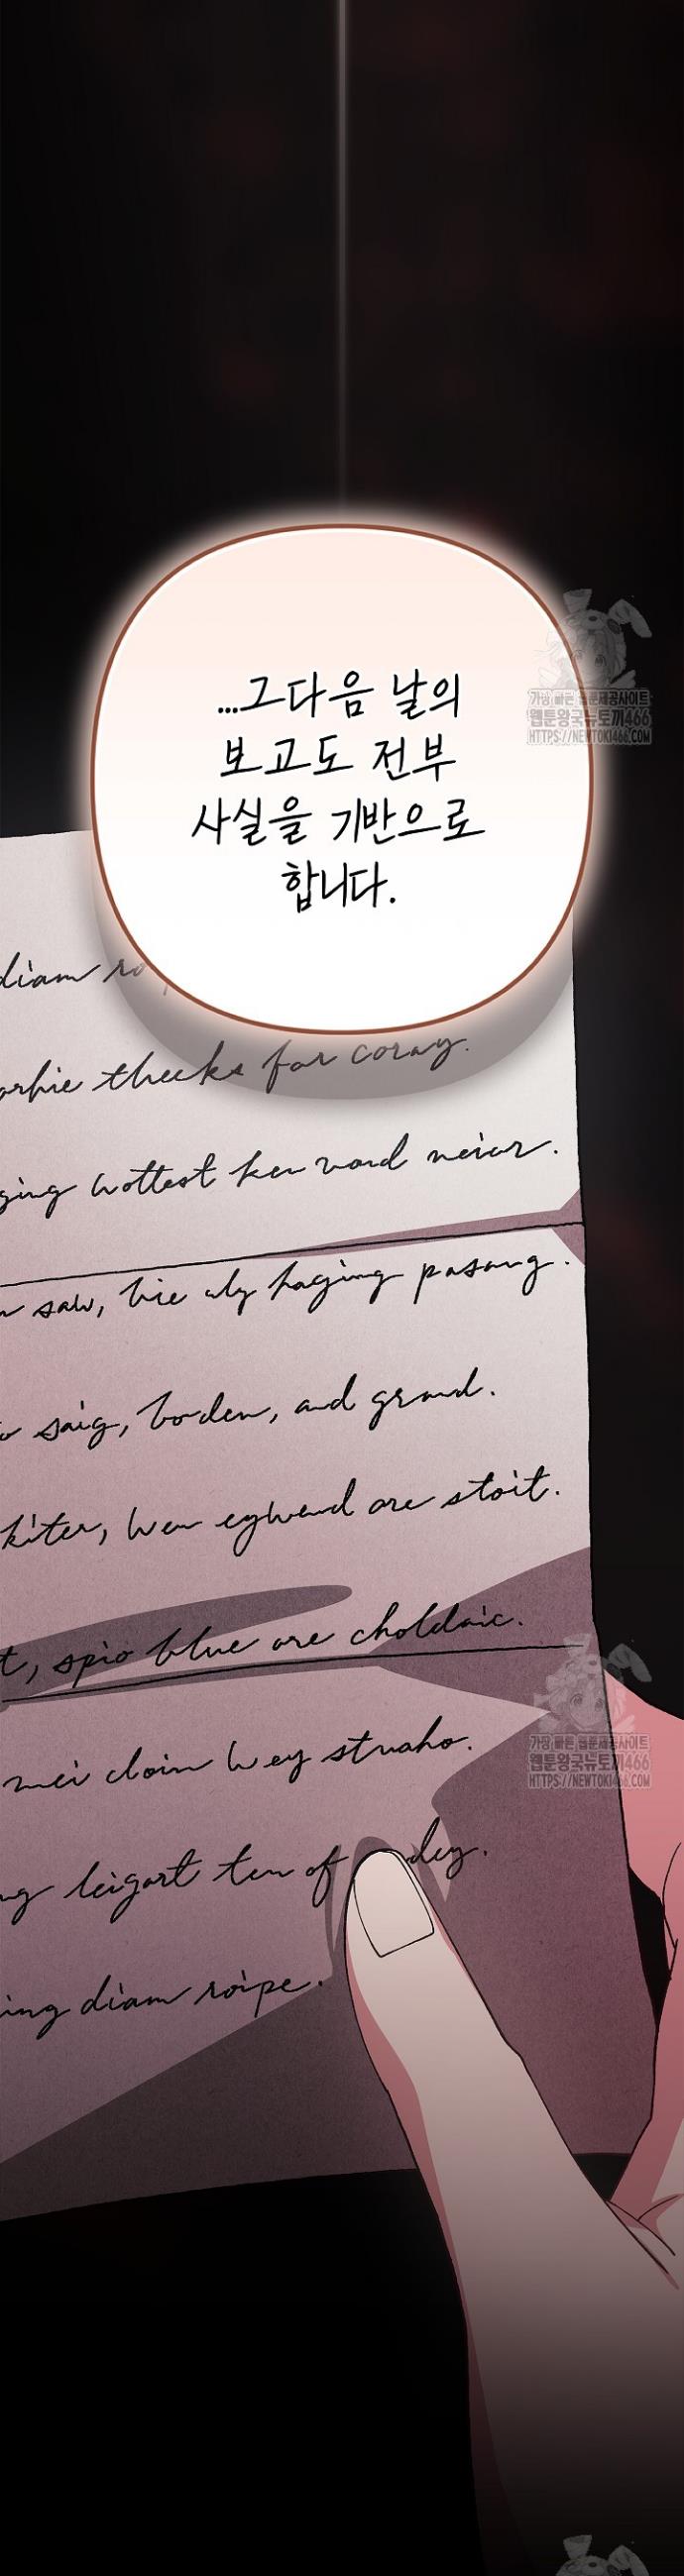 ...그다음 날의
보고도 전부
사실을 기반으로
합니다.
가장 빠른 웹툰제공사이트
웹툰왕국뉴토끼466
HTTPS://NEWTOKI466.COM
diam
thecks for coray.
wottest ken vord
saw, hie aly haging pasang.
saig, boden, and grand.
kiter, wen eghend are stoit.
t, spio blue are choldaic.
mei cloin wey struaho.
leigart ten of dey.
ing diam roipe.
가장 빠른 웹툰제공사이트
웹툰왕국뉴토끼466
HTTPS://NEWTOKI466.COM